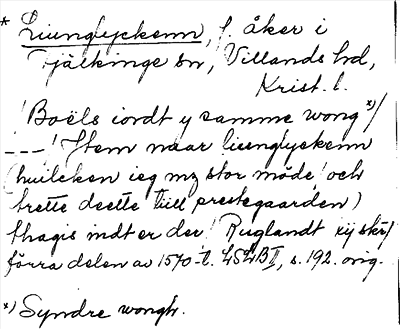 * Liunglyckenn, f. åker i
Fjälkinge sn, Villands hd,
Krist. l.
'Boëls iordt y samme wong'ˣ⁾/
---' Item naar liunglyckenn
(huilcken ieg mz stor möde' och
trette deelte till prestegaarden)
thagis indt er der' Ruglandt xij skr/
förra delen av 1570-t. LSLB II, s. 192. orig.
ˣ⁾ Syndre wongh.